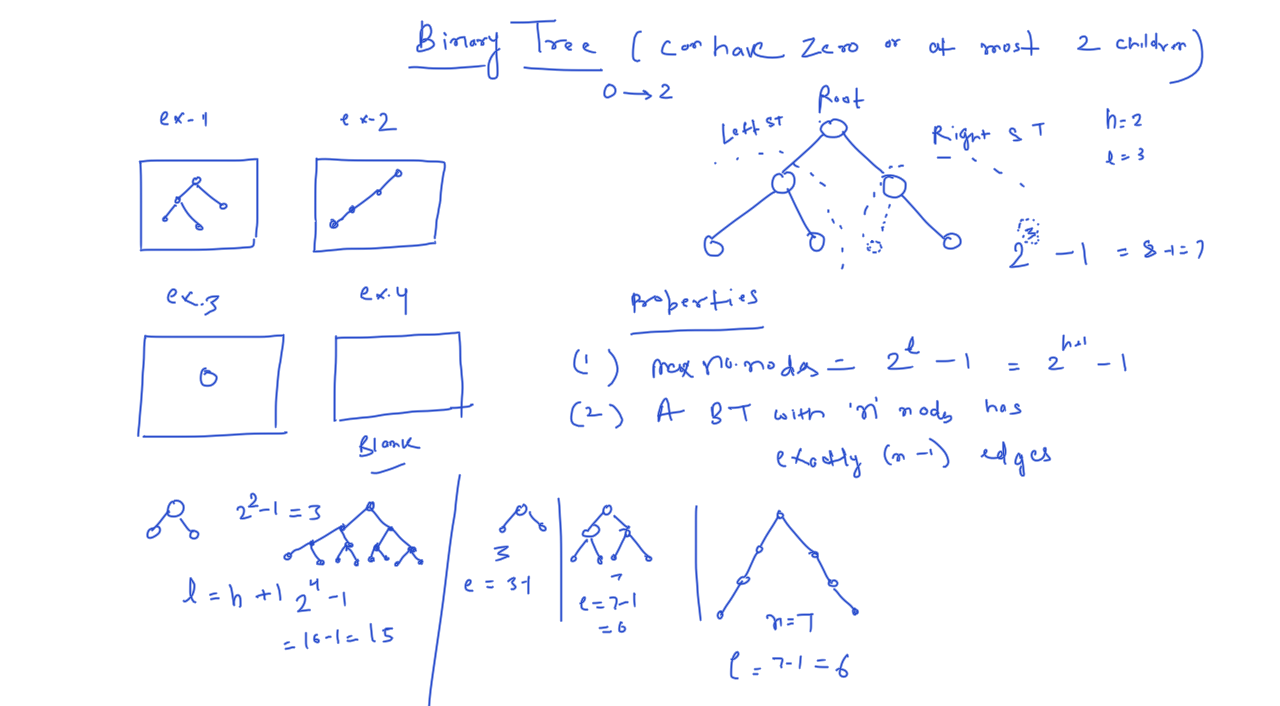 Binary Tree (can have zero or at most 2 children)
0 → 2
ex-1
ex-2
Left ST
Root
Right ST
h=2
l=3
2^3 - 1 = 8-1=7
ex.3
ex.4
Blank
Properties
(1) max no. nodes = 2^l - 1 = 2^h+1 - 1
(2) A BT with 'n' nodes has
exactly (n-1) edges
2^2-1 = 3
l = h+1
2^4-1
= 16-1 = 15
3
e = 3-1
7
e = 7-1
= 6
n=7
e = 7-1 = 6